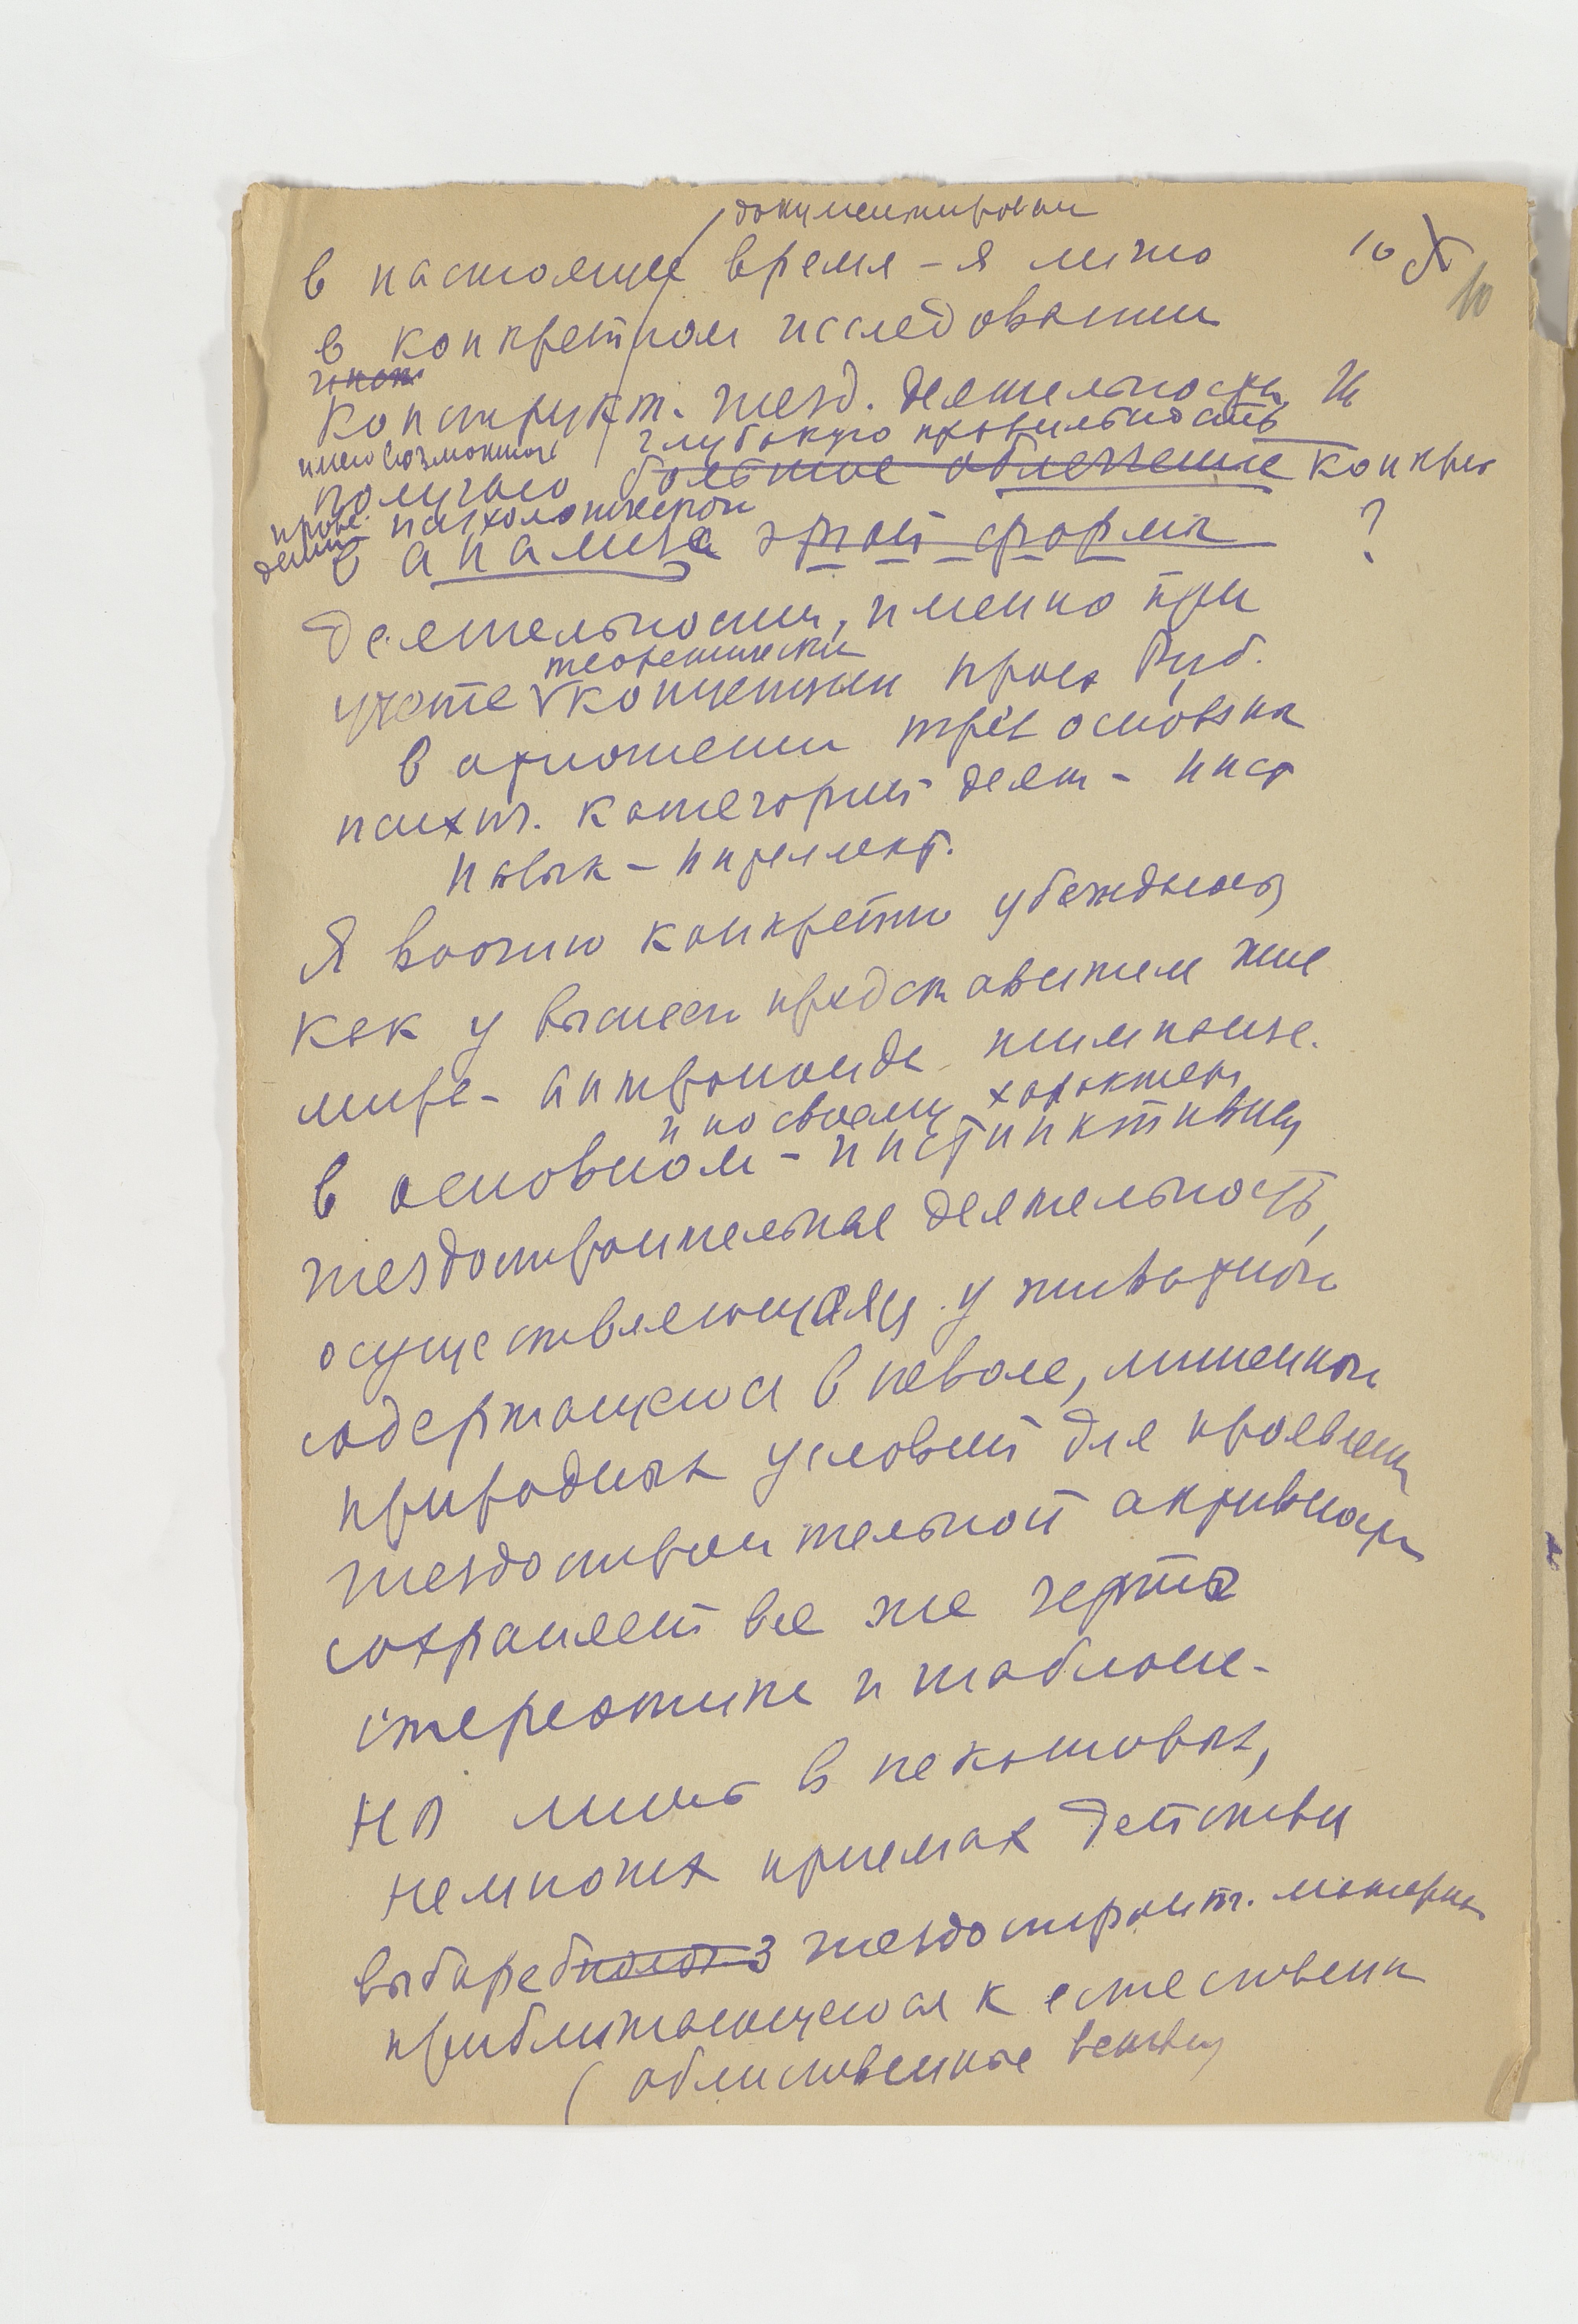 документирован
в настоящее время – я лично 10
10
в конкретном исследовании
конструкт. гнезд. деятельности Ш
имею возможность глубокую правильность
получаю большое облегчение конкрет
психологической
в анализа этой формы ?
деятельности, именно при
теоретически
учете концепции проф Руб.
в отношении трёх основных
психич. категорий деят – инст
навык – интеллект.
Я воочию конкретно убеждаюсь
как у высшего представителя жив
мира – антропоида шимпанзе.
и по своему характеру
в основном – инстинктивную
гнездостроительная деятельность,
осуществляющаяся у животного
содержащегося в неволе, лишенном
природных условий для проявлен
гнездостроительной активности
сохраняет все же черты
стереотипа и шаблона –
Но лишь в некоторых,
немногих приемах действия
выборе гнездостроит. материала
приближающегося к естественн
(облиственные ветви